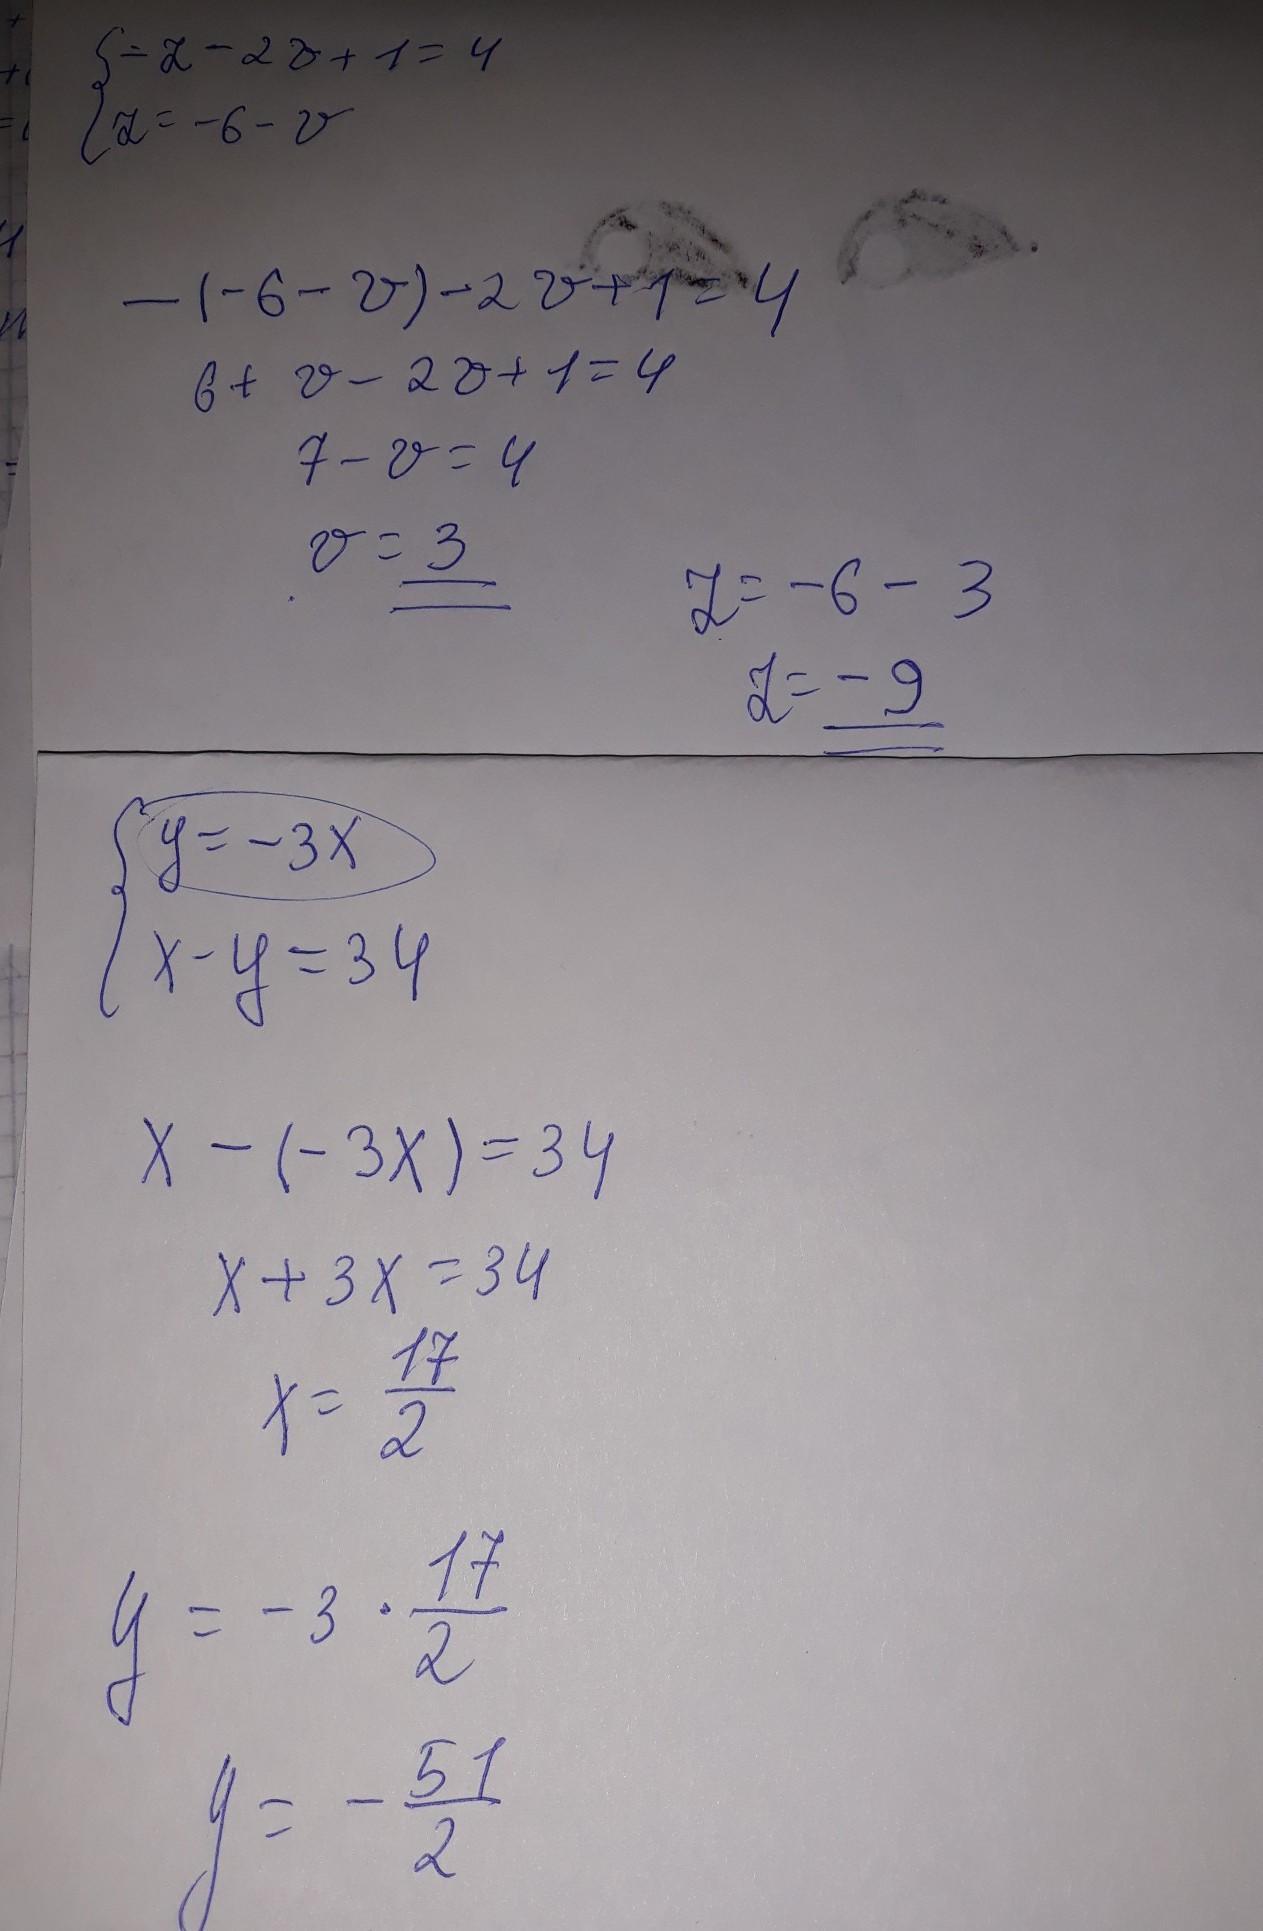 {-z-2v+1=4
z=-6-v
-(-6-v)-2v+1=4
6+v-2v+1=4
7-v=4
v=3
z=-6-3
z=-9
{y=-3x
x-y=34
x-(-3x)=34
x+3x=34
x=17/2
y=-3·17/2
y=-51/2